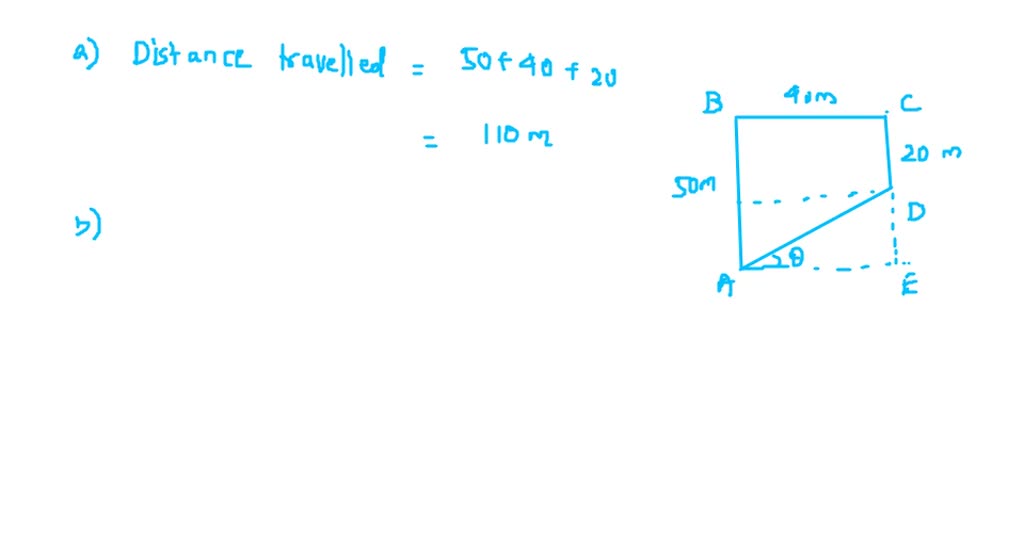 a) Distance travelled = 50 + 40 + 20
= 110 m
B 40m C
20 m
50m
D
b)
θ
A E